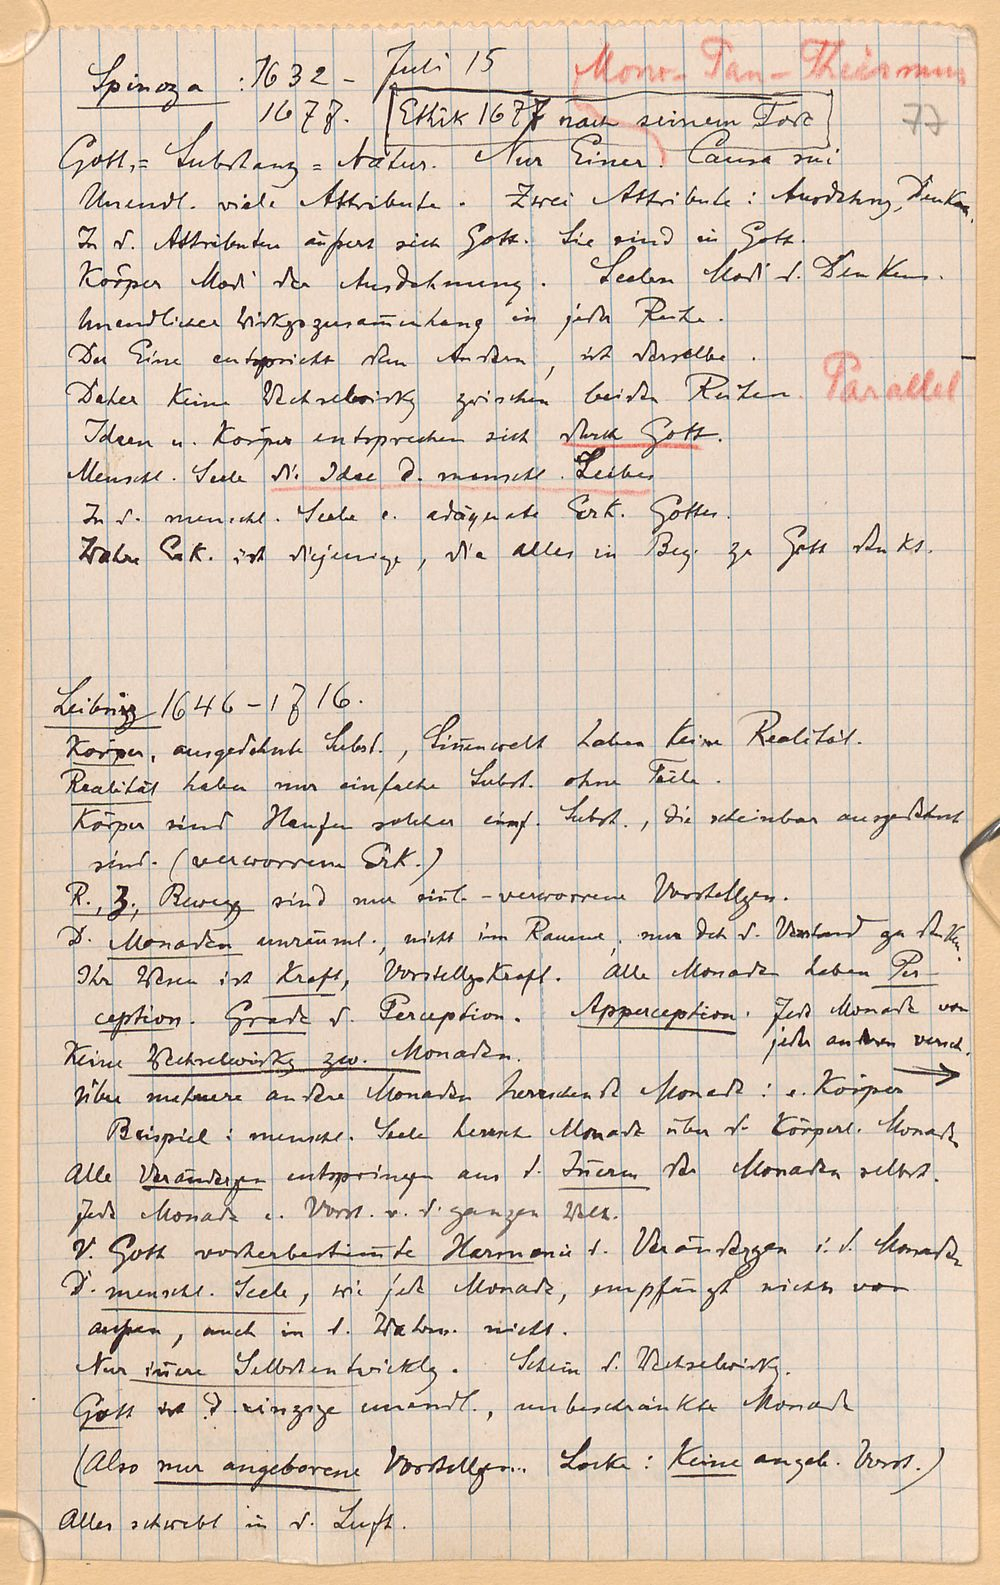 Juli 15
Mono- Pan-Theismus
Spinoza : 1632 -
1677. Ethik 1677 nach seinem Tod
77
Gott = Substanz = Natur. Nur Einer. Causa sui
Unendl. viele Attribute. Zwei Attribute: Ausdehng, Denken.
In d. Attributen äußert sich Gott. Sie sind in Gott.
Körper Modi der Ausdehnung. Seelen Modi d. Denkens.
Unendlicher Wirkgszusam̄enhang in jeder Reihe.
Der Eine entspricht dem Andern, ist derselbe.
Daher Keine Wechselwirkg zwischen beiden Reihen. Parallel
Ideen u. Körper entsprechen sich durch Gott.
Menschl. Seele die Idee d. menschl. Leibes
In d. menschl. Seele e. adäquate Erk. Gottes.
Wahre Erk. ist diejenige, die alles in Bez. zu Gott denkt.
Leibniz 1646-1716.
Körper, ausgedehnte Subst., Sin̄enwelt haben Keine Realität.
Realität haben nur einfache Subst. ohne Teile.
Körper sind Haufen solcher einf. Subst., die scheinbar ausgedehnt
sind. (verworrene Erk.)
R., Z., Bewegg sind nur sinl.-verworrene Vorstellgen.
D. Monaden unräuml., nicht im Raume, nur dch d. Verstand zu denken.
Ihr Wesen ist Kraft, VorstellgsKraft. Alle Monaden haben Per-
ception. Grade d. Perception. Apperception. Jede Monade von
jeder anderen versch.
Keine Wechselwirkg zw. Monaden.
Über mehrere andere Monaden herrschende Monade: e. Körper
Beispiel: menschl. Seele herrsch. Monade über d. Körperl. Monaden
Alle Verändergen entspringen aus d. In̄ern der Monaden selbst.
Jede Monade e. Vorst. v. d. ganzen Welt.
V. Gott vorherbestim̄te Harmonie d. Verändergen i. d. Monaden
D. menschl. Seele, wie jede Monade, empfängt nichts von
außen, auch in d. Wahrn. nicht.
Nur in̄ere Selbstentwicklg. Schein d. Wechselwirkg.
Gott ist d. einzige unendl., unbeschränkte Monade
(Also nur angeborene Vorstellgen.. Locke: Keine angeb. Vorst.)
Alles schwebt in d. Luft.